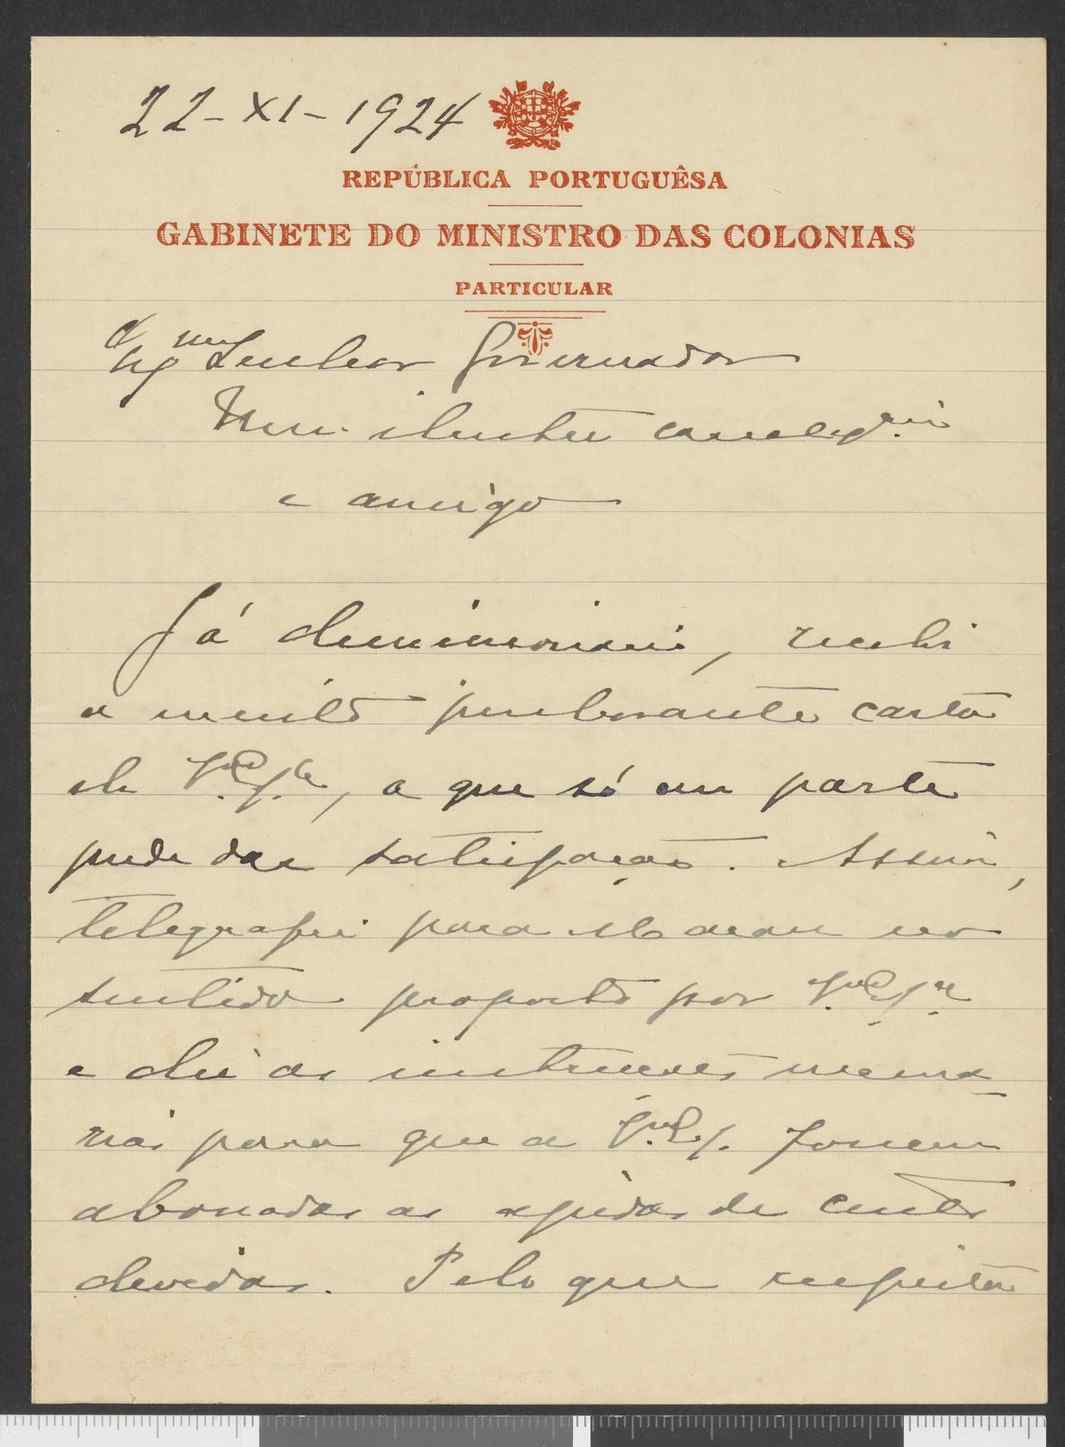 22-XI-1924
REPÚBLICA PORTUGUÊSA
GABINETE DO MINISTRO DAS COLONIAS
PARTICULAR
Exmo Senhor Governador
Meu ilustre
e amigo
Já demissionario, recebi
a muito penhorante carta
de V. Ex.cia, a que só em parte
pude dar satisfação. Assim,
telegrafei para Macau no
sentido proposto por V. Ex.cia
e dei as instruções necessa-
rias para que a V. Ex. fossem
abonadas as ajudas de custo
devidas. Pelo que respeita